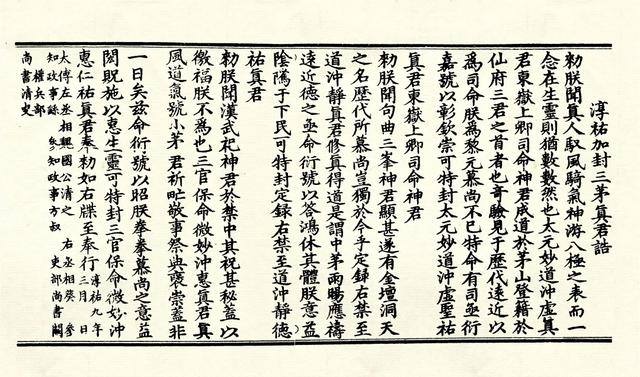 淳祐加封三茅真君誥
勑朕聞真人馭風騎氣神游八極之表而一
念在生靈則猶數數然也太元妙道沖虛真
君東嶽上卿司命神君成道於茅山登籍於
仙府三君之首者也奇驗見于歷代遠近以
為司命朕為黎元慕尚不已特命有司亟衍
嘉號以彰欽崇可特封太元妙道沖虛聖祐
真君東嶽上卿司命神君
勑朕聞句曲三峯神君顯甚遂有金壇洞天
之名歷代所慕尚豈獨於今乎定録右禁至
道沖靜真君修真得道是謂中茅雨暘應禱
遠近德之亟命衍號以答鴻休其體朕意益
陰隲于下民可特封定録右禁至道沖靜德
祐真君
勑朕聞漢武祀神君於禁中其祝甚秘蓋以
徼福朕不為也三官保命微妙沖惠真君真
風道氣號小茅君祈旺敬事祭典褒崇蓋非
一日矣兹命衍號以昭朕拳拳慕尚之意益
閎貺施以惠生靈可特封三官保命微妙沖
惠仁祐真君奉勑如右牒至奉行淳祐九年三月日
太傅左丞相興國公清之 右丞相葵 參
知政事 參知政事方叔 吏部尚書闕
權兵部
尚書清叟